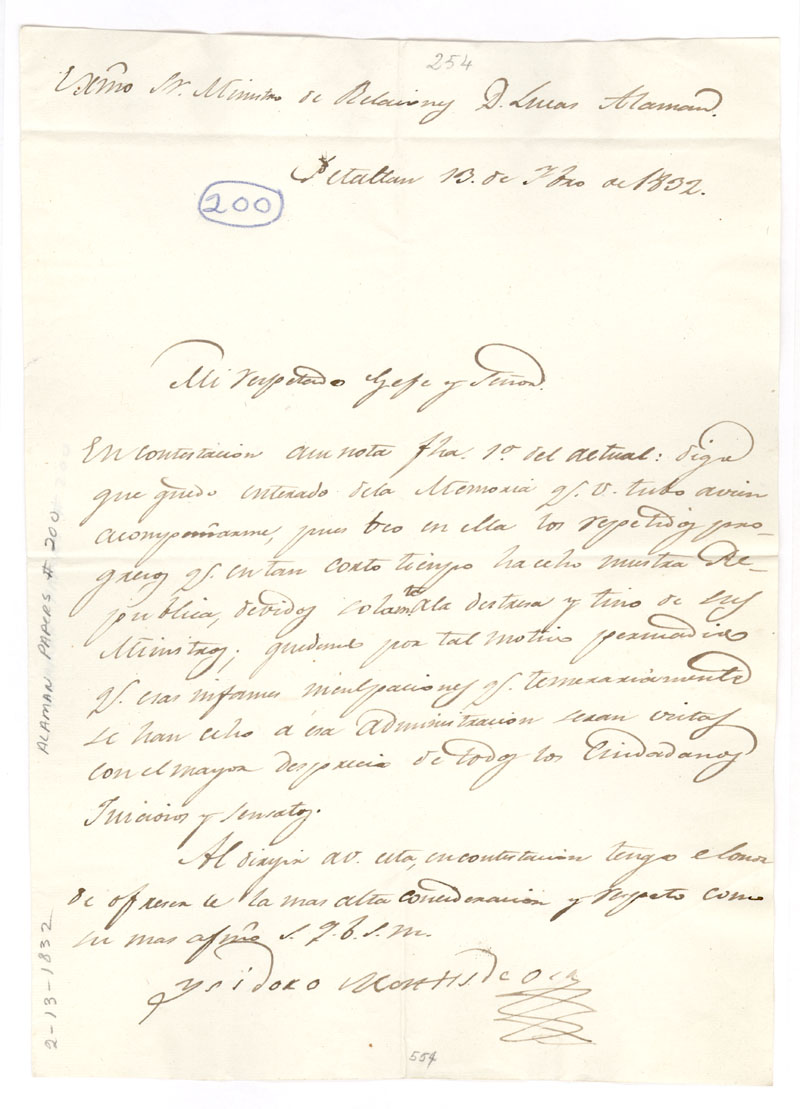 254
Exmo Sr. Ministro de Relaciones D. Lucas Alaman.
Petatlan 13. de Fbro de 1832.
200
Mi respetado Gefe y Señor.
En contestacion asu nota fha. 1º del actual: digo
que quedo enterado dela Memoria qe. V. tubo avien
acompañarme, pues beo en ella los repetidos pro-
gresos qe. en tan corto tiempo ha echo nuestra Re-
publica, devidos solamte. ala destresa y tino de sus
Ministros; quedeme por tal motivo persuadido
qe. esas infames inculpaciones qe. temerariamente
se han echo á esa Administracion seran vistas
con el mayor desprecio de todos los Ciudadanos
Juiciosos y sensatos.
Al dirijir a V. esta, en contestacion tengo el onor
de ofreserle la mas alta concideracion y respeto como
su mas afmo S. Q. b. s. m.
Ysidoro Montesdeoca
554
ALAMAN PAPERS # 200
2-13-1832